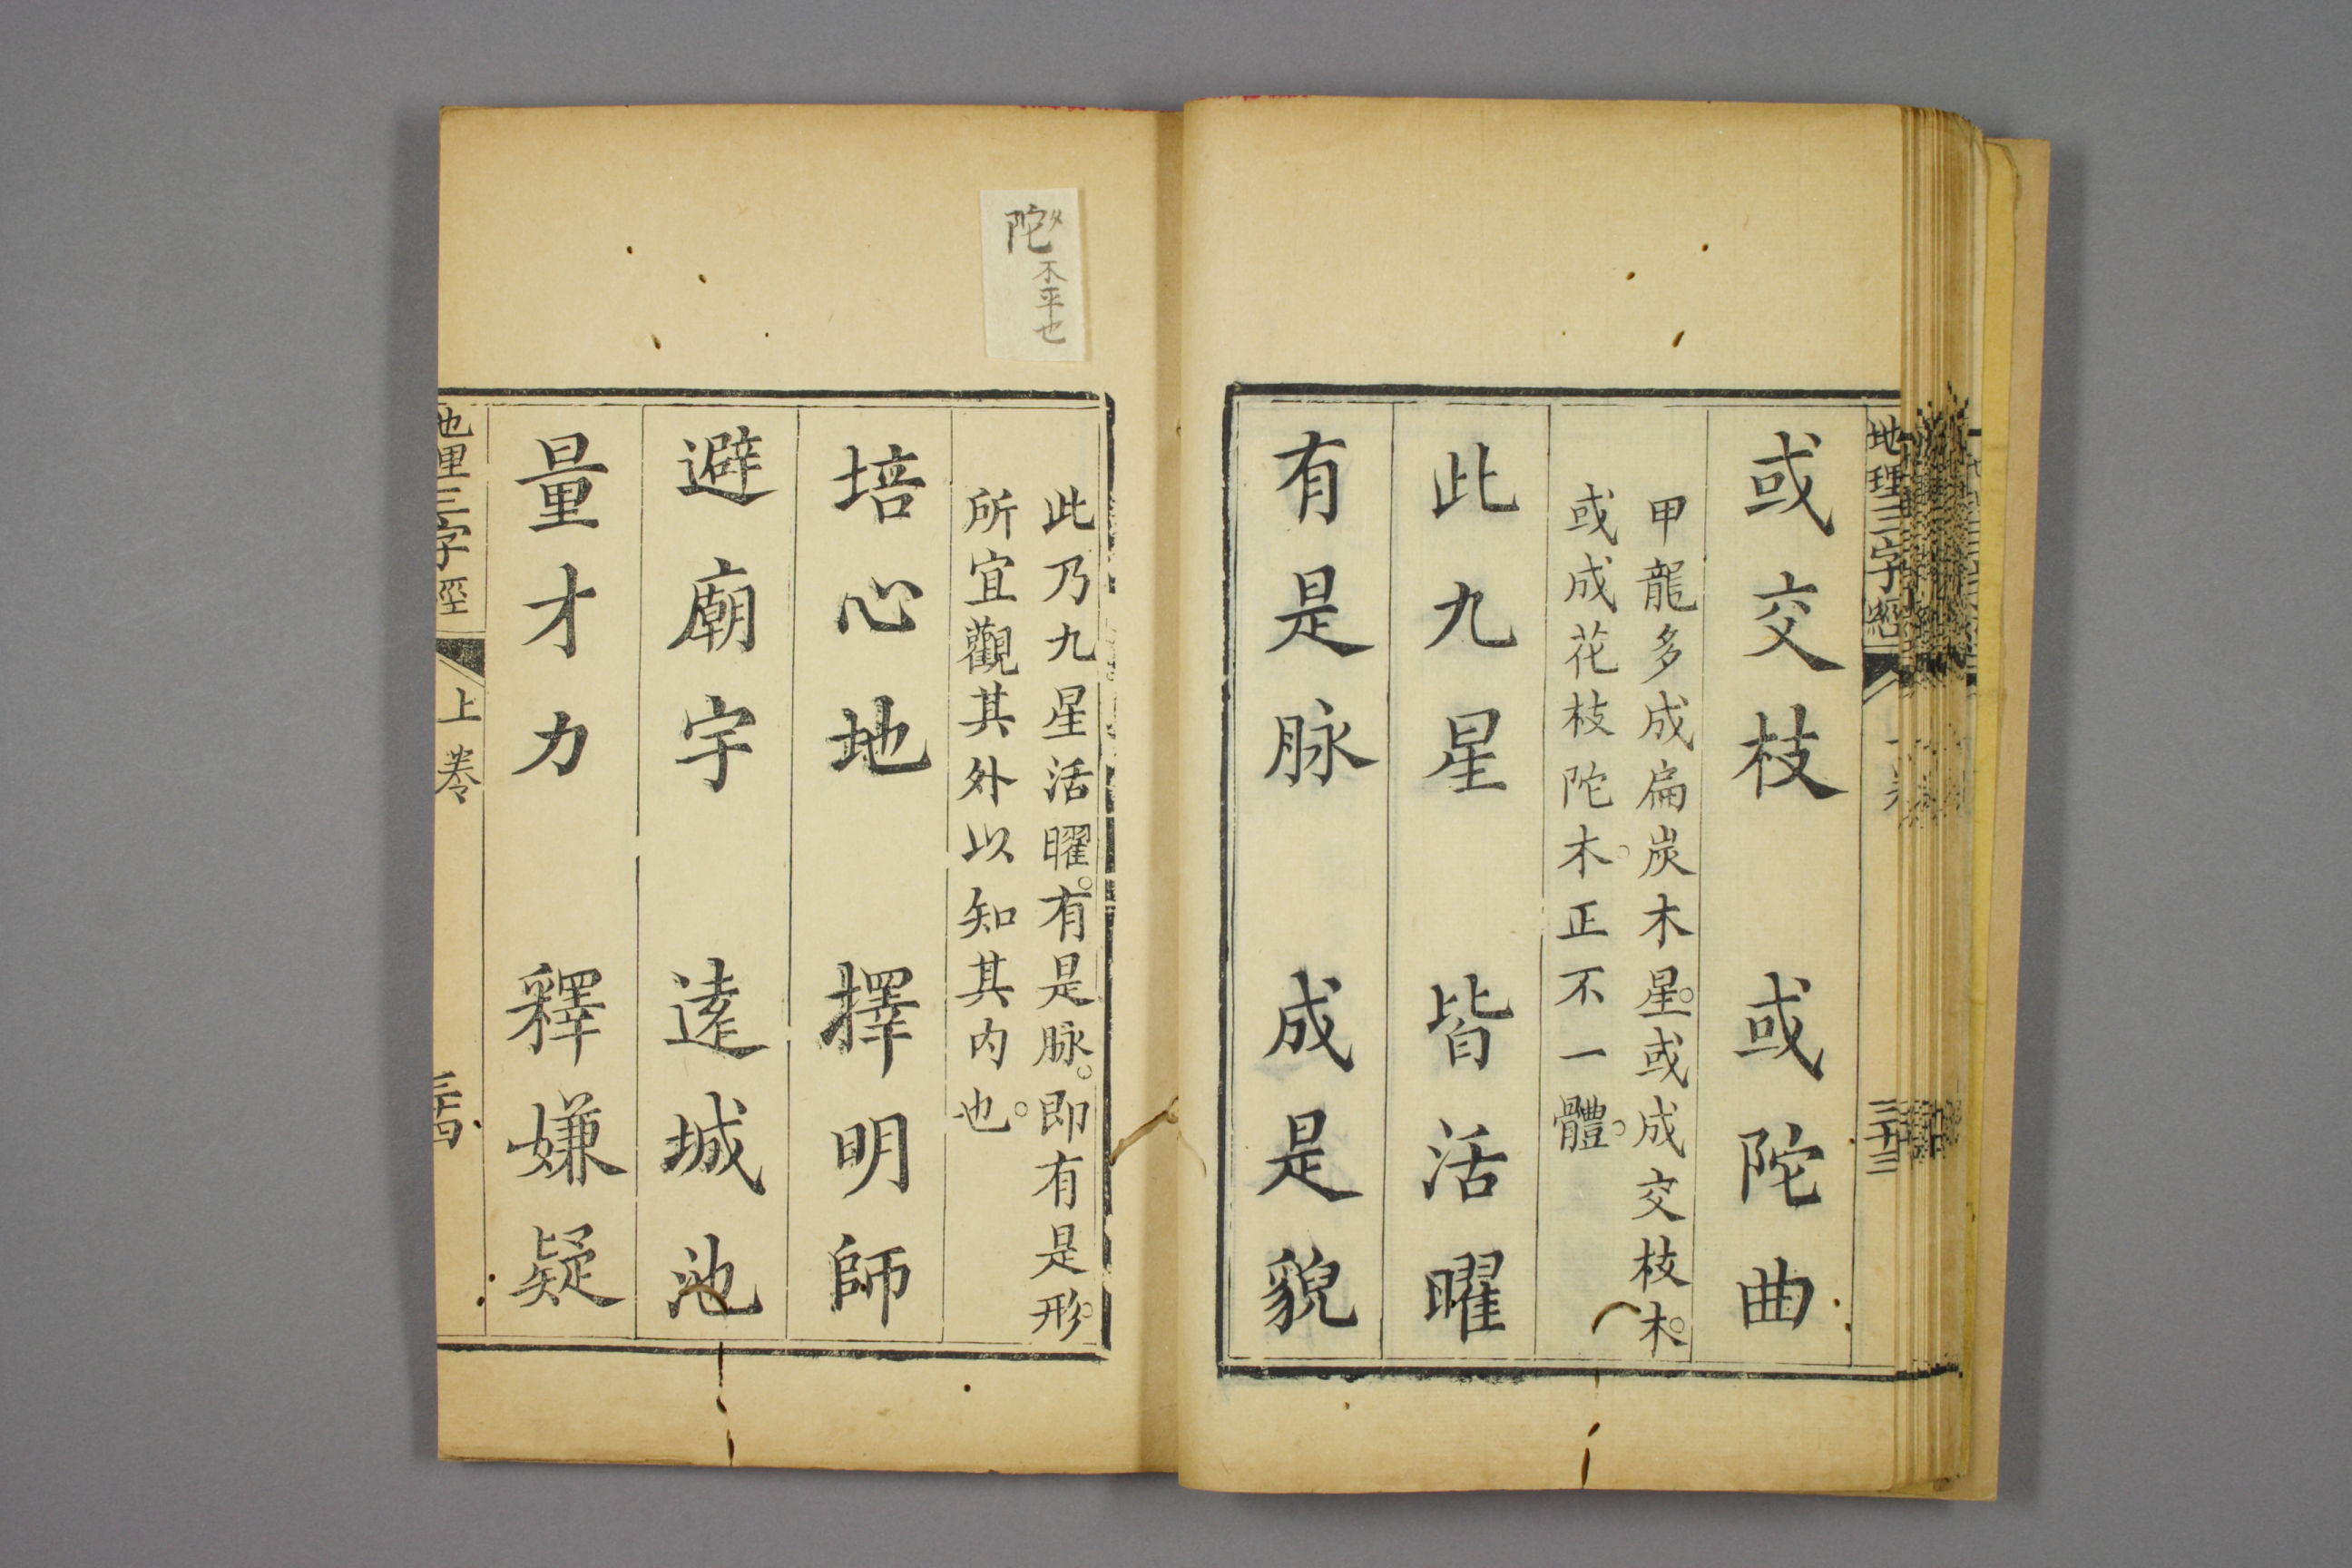 地理三字經
三十三
或交枝　或陀曲
甲龍多成扁炭木星。或成交枝木。
或成花枝陀木。木正不一體。
此九星　皆活曜
有是脉　成是貌
陀
不平也
此乃九星活曜。有是脉。即有是形。
所宜觀其外以知其内也。
培心地　擇明師
避廟宇　遠城池
量才力　釋嫌疑
地理三字經　上卷　三十四